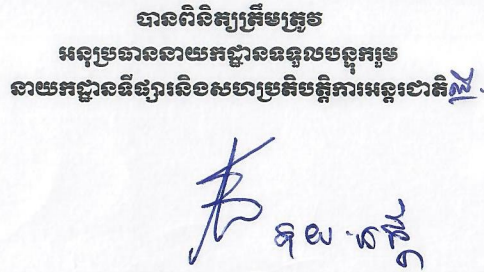 បានពិនិត្យត្រឹមត្រូវ
អនុប្រធាននាយកដ្ឋានទទួលបន្ទុករួម
នាយកដ្ឋានទីផ្សារនិងសហប្រតិបត្តិការអន្តរជាតិ
ទុយ